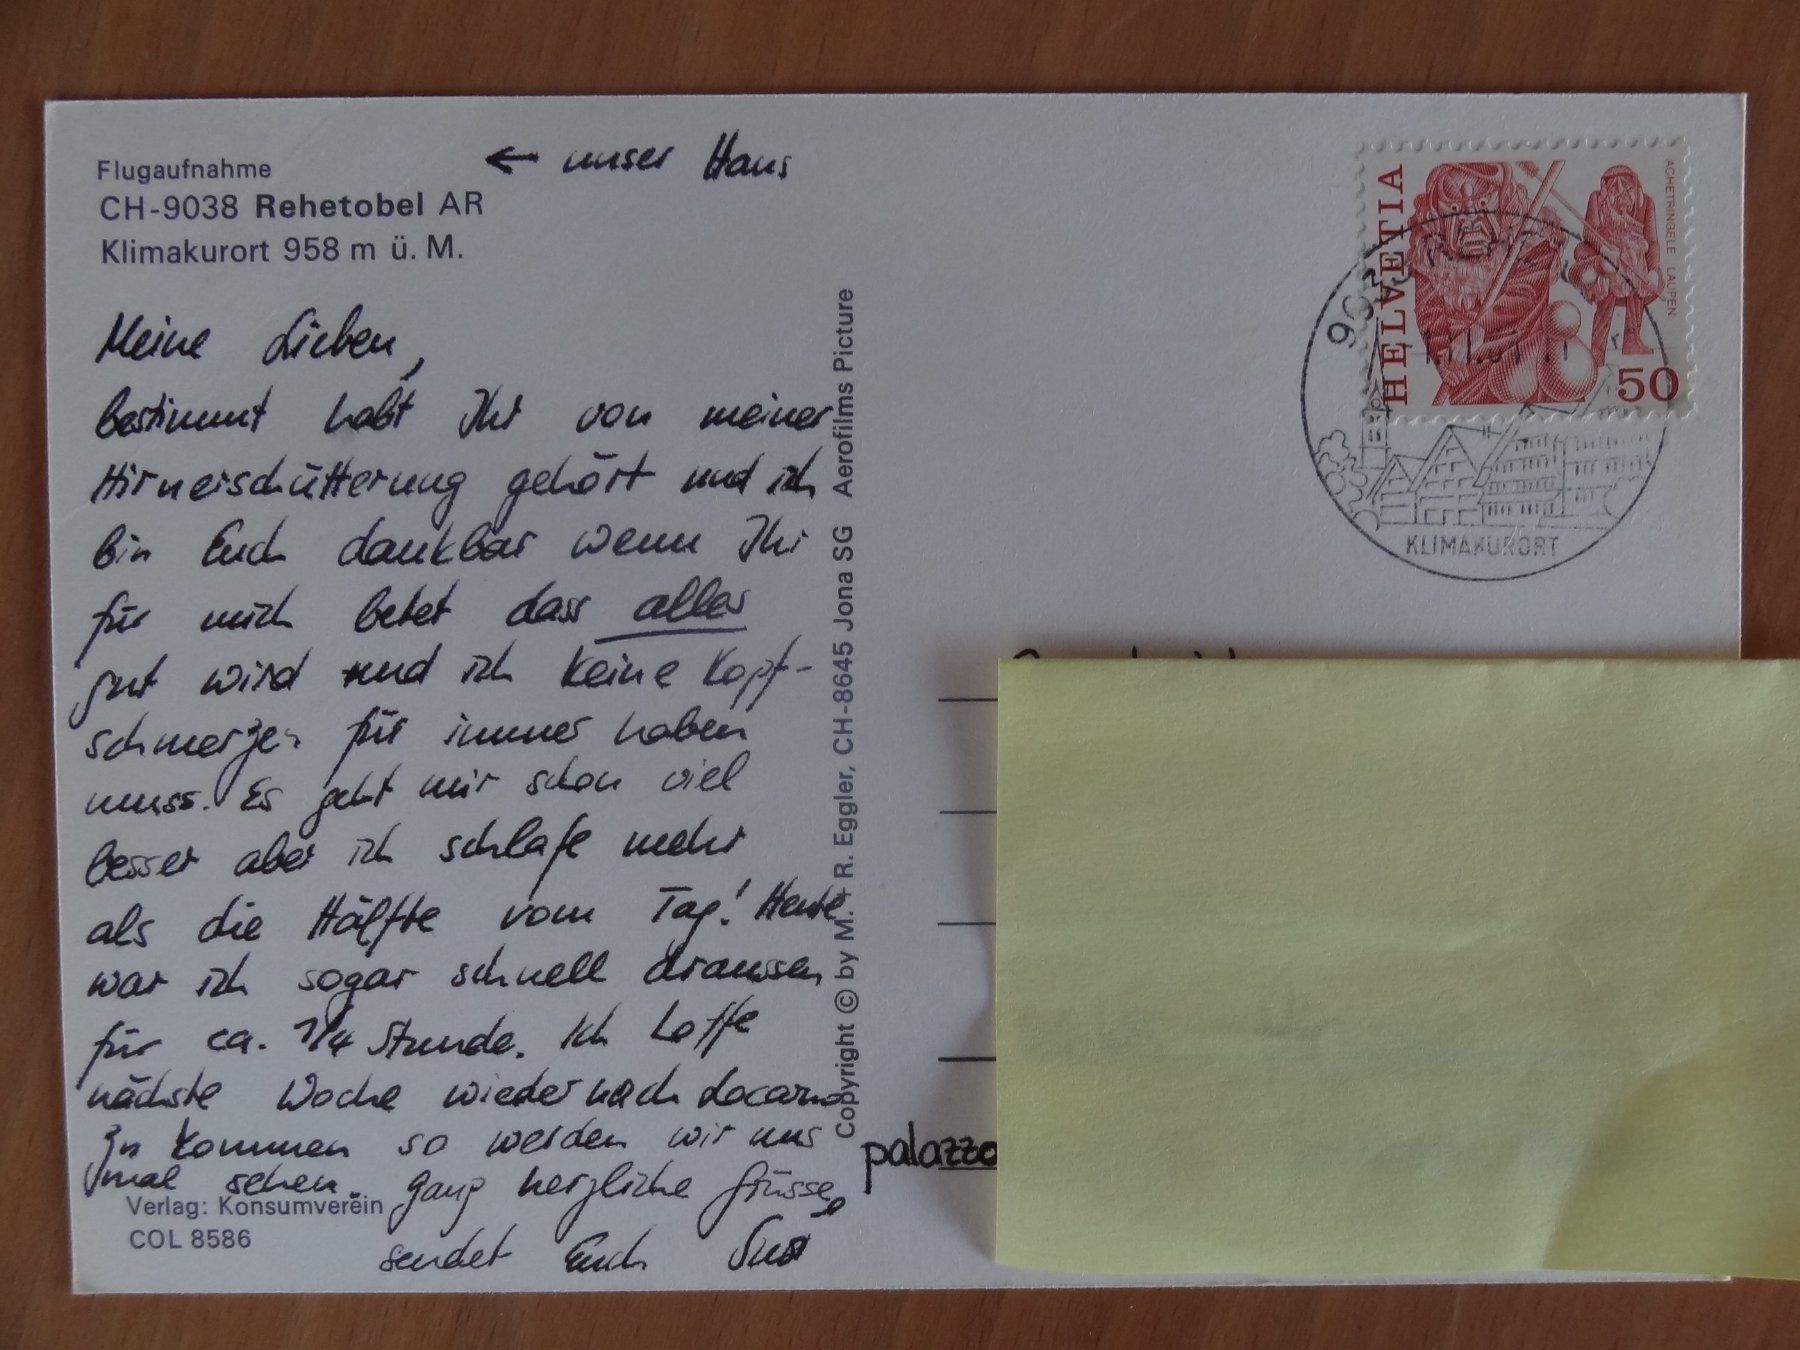 Flugaufnahme
CH-9038 Rehetobel AR
Klimakurort 958 m ü. M.
← unser Haus
Meine Lieben,
bestimmt habt Ihr von meiner
Hirnerschütterung gehört und ich
bin Euch dankbar wenn Ihr
für mich betet dass alles
gut wird und ich keine Kopf-
schmerzen für immer haben
muss. Es geht mir schon viel
besser aber ich schlafe mehr
als die Hälfte vom Tag! Heute
war ich sogar schnell draussen
für ca. 1/4 Stunde. Ich hoffe
nächste Woche wieder nach Locarno
zu kommen so werden wir uns
mal sehen. Ganz herzliche Grüsse
sendet Euch
Verlag: Konsumverein
COL 8586
Copyright © by M. + R. Eggler, CH-8645 Jona SG Aerofilms Picture
HELVETIA
ACHETRINGELE LAUPEN
50
KLIMAKURORT
palazzo